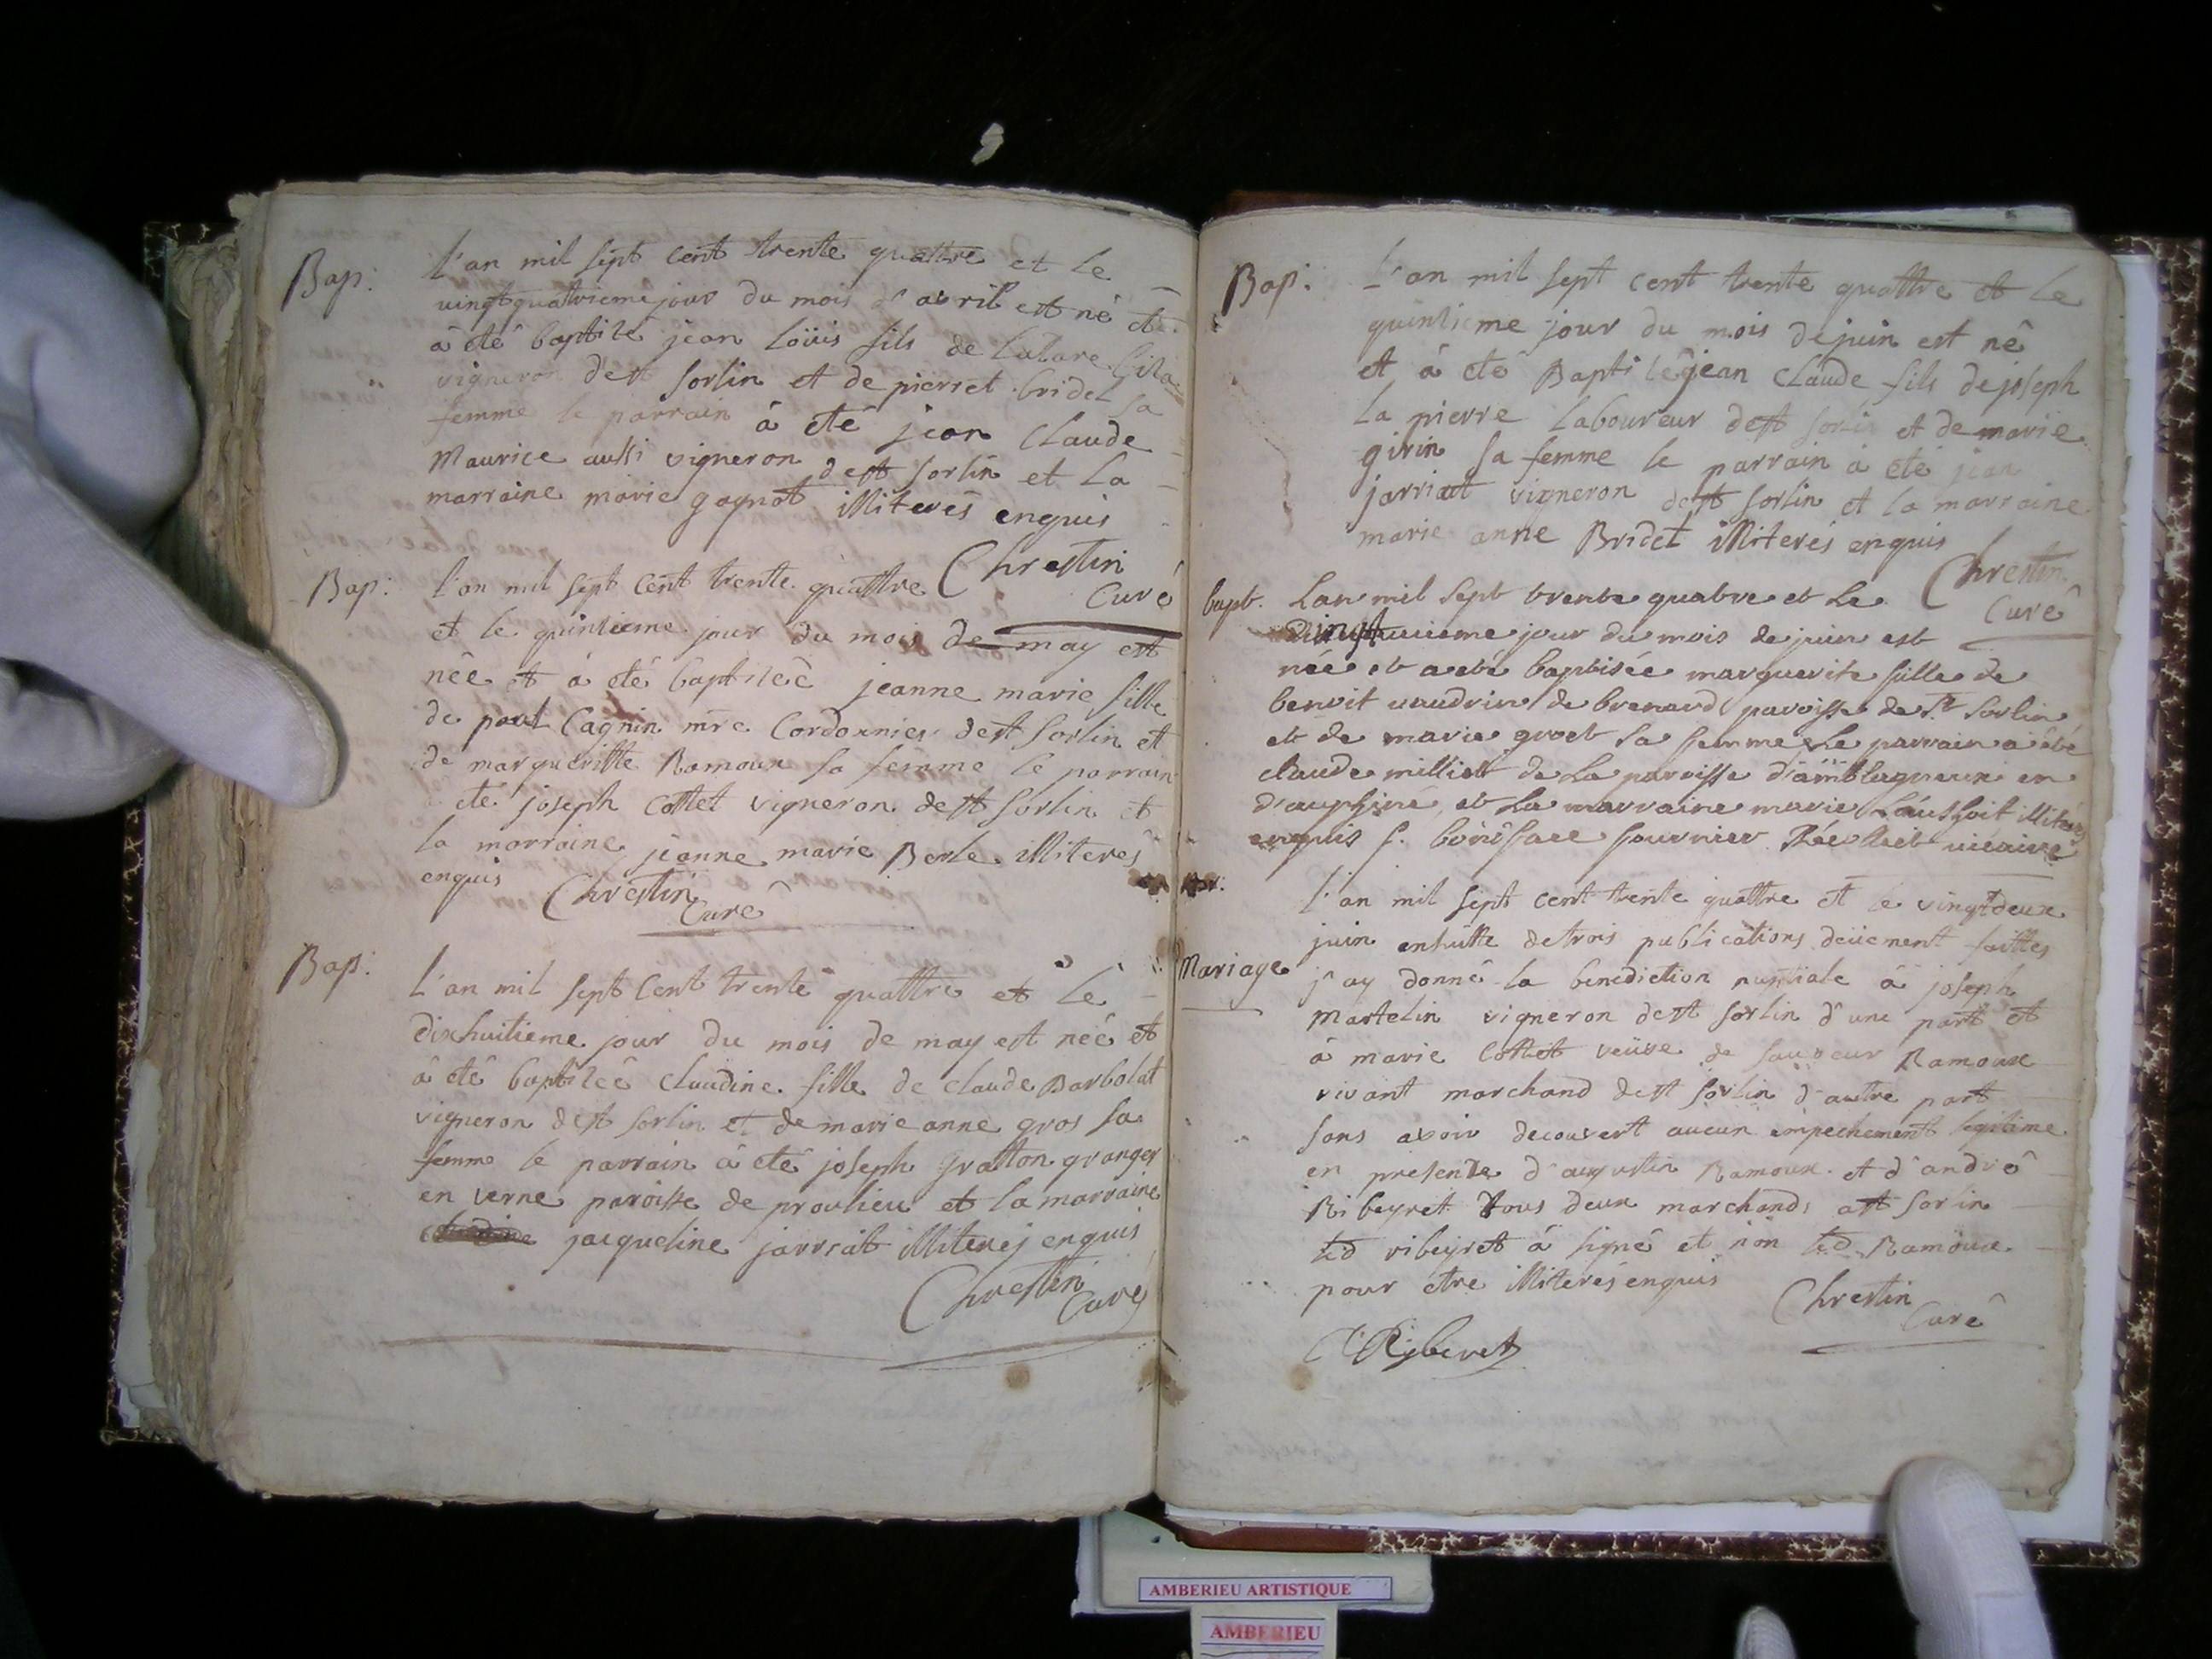 Bap: l'an mil sept cent trente quattre et le
vingtquatrieme jour du mois d'avril est né et
à été baptisé jean loüis fils de lazare
vigneron de st sorlin et de pierret bridet sa
femme le parrain à été jean claude
Maurice aussi vigneron de st sorlin et la
marraine marie gagnot illiterés enquis
Chrestin
Curé
Bap: l'an mil sept cent trente quattre
et le quinzieme jour du mois de may est
née et à été baptizeé jeanne marie fille
de paul Cagnin mre Cordonnier de st sorlin et
de margueritte Ramoux sa femme le parrain
à été joseph cottet vigneron de st sorlin et
la marraine jeanne marie Berle illiterés
enquis Chrestin
Curé
Bap: l'an mil sept cent trente quattre et le
dixhuitieme jour du mois de may est née et
à été baptizeé claudine fille de claude Barbolat
vigneron de st sorlin et de marie anne gros sa
femme le parrain à été joseph gratton granger
en verne paroisse de proulieu et la marraine
jacqueline jarriat illiterés enquis
Chrestin
Curé
Bap: L'an mil sept cent trente quattre et le
quinzieme jour du mois de juin est né
et à été Baptizé jean claude fils de joseph
la pierre laboureur de st sorlin et de marie
girin sa femme le parrain à été jean
jarriat vigneron de st sorlin et la marraine
marie anne Bridet illiterés enquis
Chrestin
Curé
bapt. Lan mil sept trente quatre et Le
jour du mois de juin est
née et a eté baptisée marguerite fille de
benoit vaudrin de brenard paroisse de St sorlin
et de marie groet sa femme Le parrain a été
claude milliet de La paroisse d'amblagneux en
d'auphiné et La marraine marie illiterés
enquis f. boniface fournier Récollet vicaire
l'an mil sept cent trente quattre et le vingtdeux
juin ensuitte de trois publications deüement faittes
Mariage j'ay donné la benediction nuptiale à joseph
Martelin vigneron de st sorlin d'une part et
à marie Cottet veüve de sauveur Ramoux
vivant marchand de st sorlin d'autre part
sans avoir decouvert aucun empechement legitime
en presence d'augustin Ramoux et d'andré
Ribeyret tous deux marchands a st sorlin
led ribeyret à signé et non led Ramoux
pour etre illiterés enquis Chrestin
Curé
Ryberet
AMBERIEU ARTISTIQUE
AMBERIEU